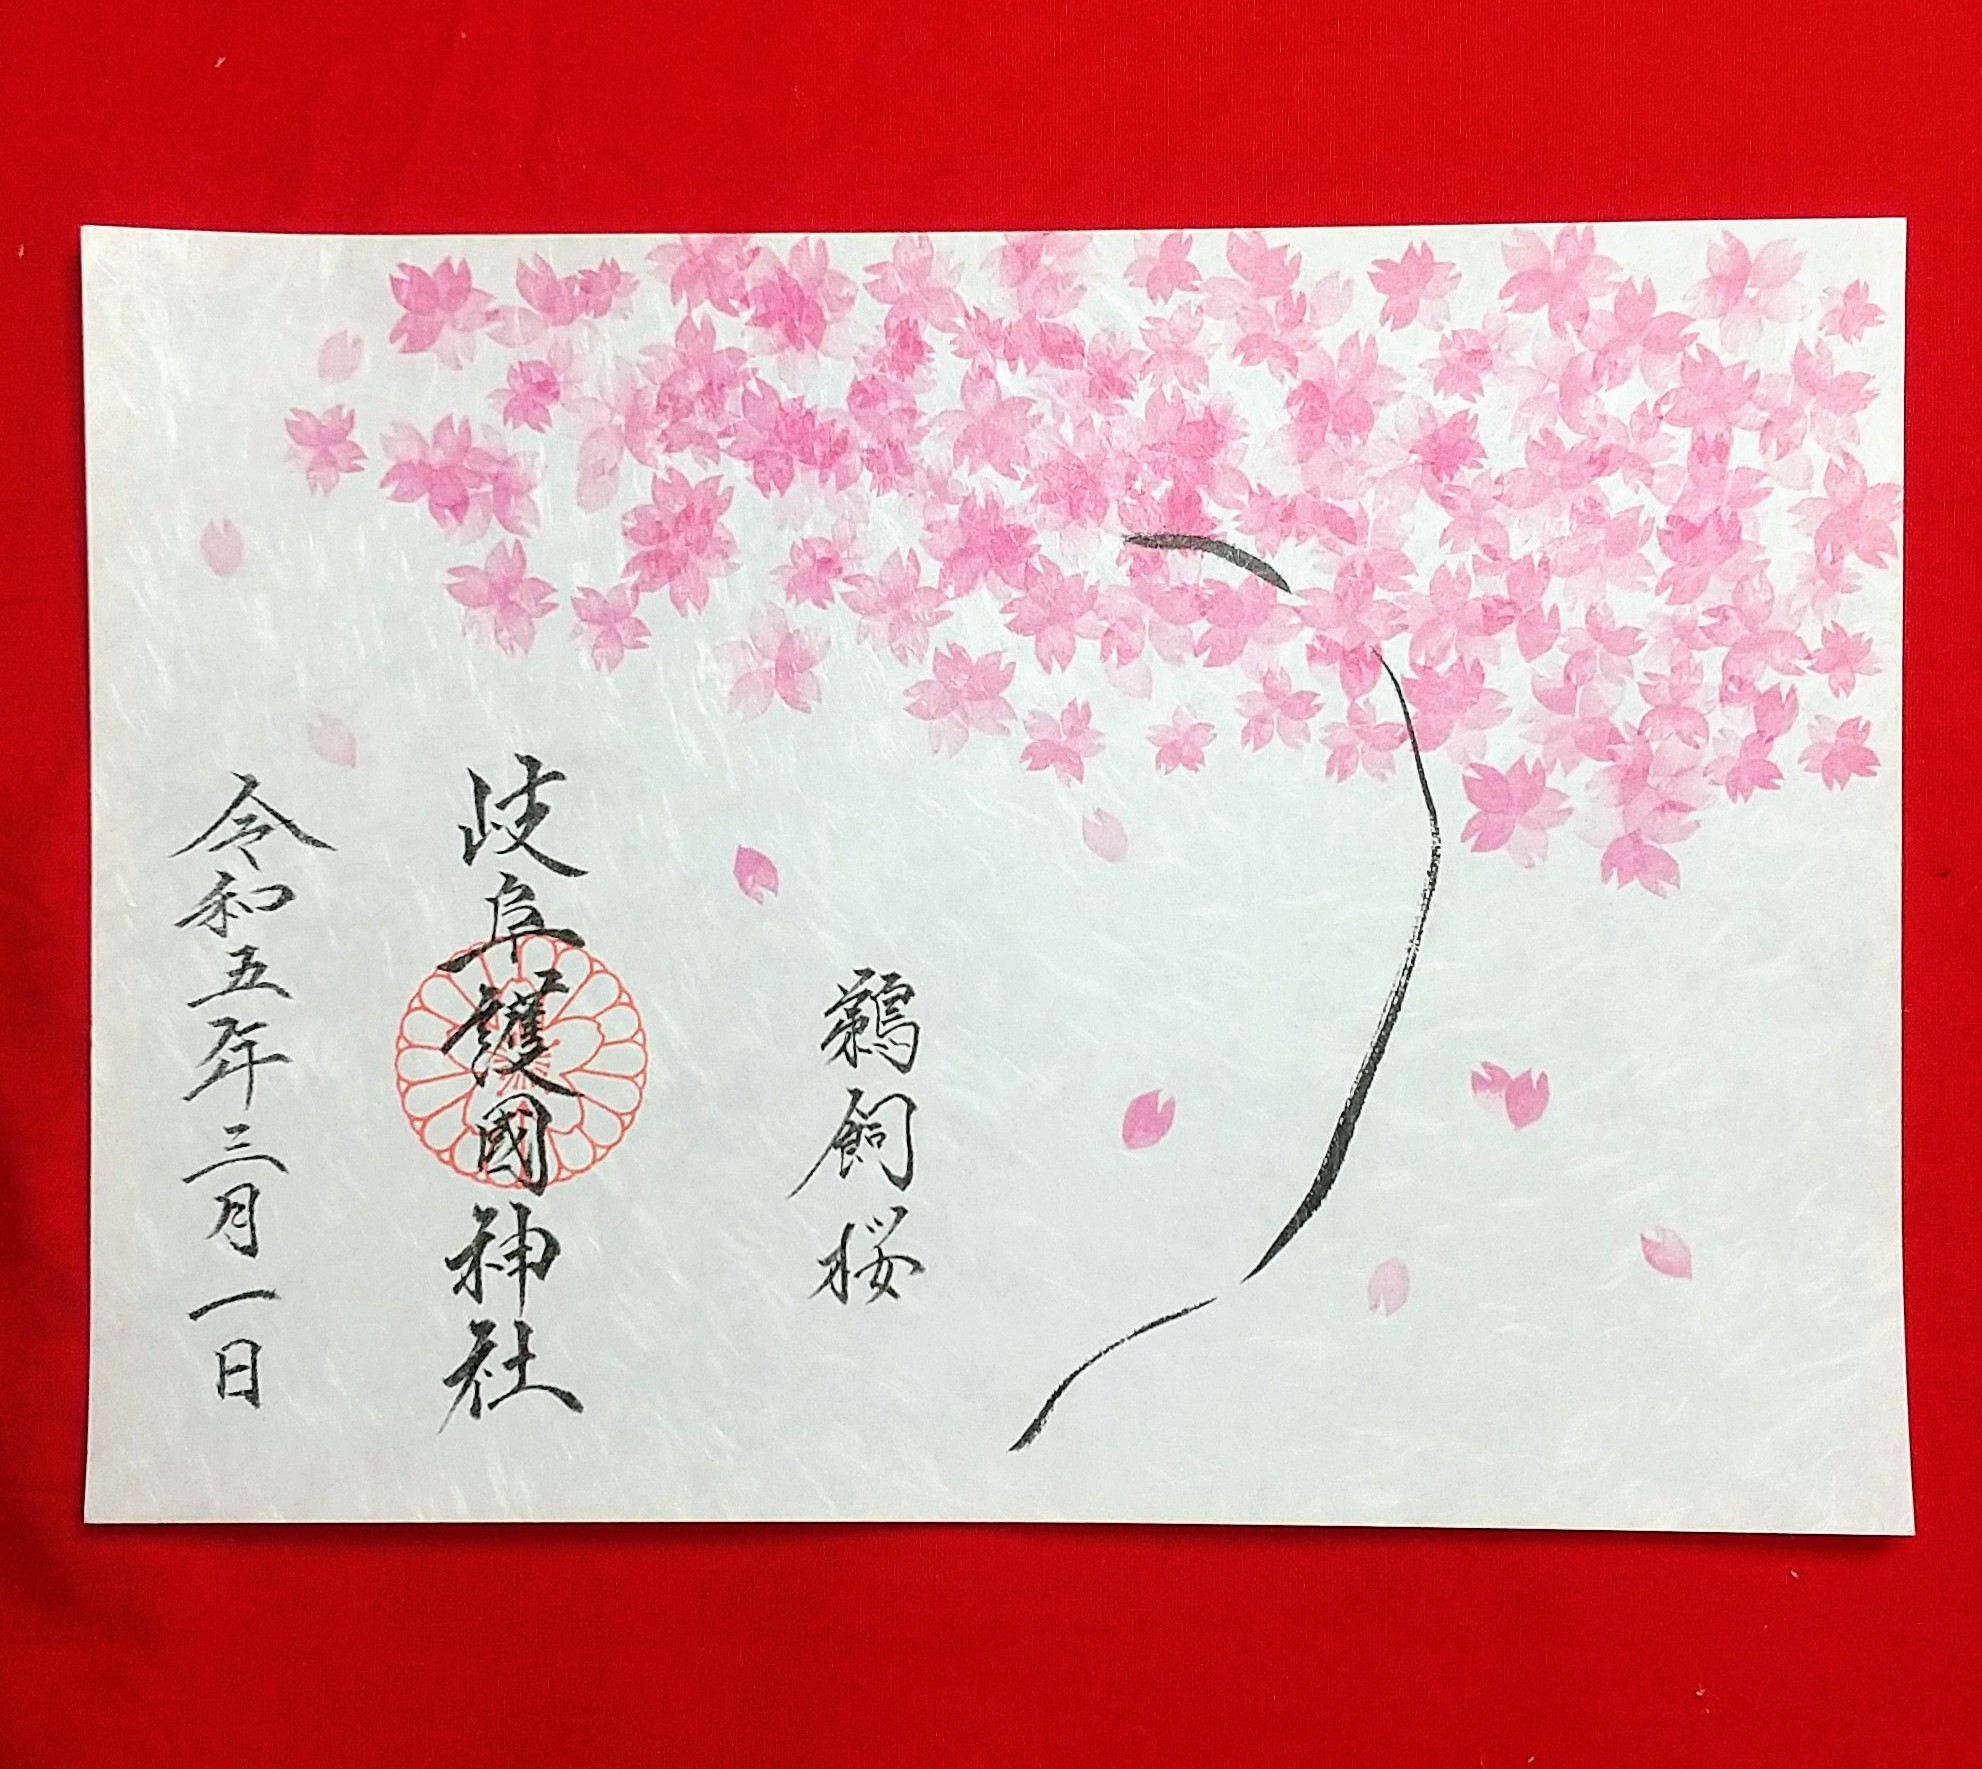 鵜飼桜
岐阜護國神社
令和五年三月一日